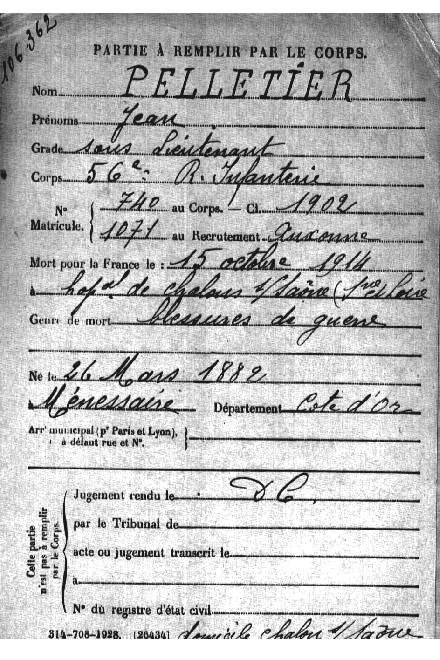 106,362
PARTIE À REMPLIR PAR LE CORPS.
Nom PELLETIER
Prénoms Jean
Grade sous Lieutenant
Corps 56e R. Infanterie
No Matricule. { 740 au Corps. — Cl. 1902
1071 au Recrutement Auxonne
Mort pour la France le : 15 octobre 1914
à hopal de chalons s/saône (Sne et Loire
Genre de mort blessures de guerre
Né le 26 Mars 1882
à Ménessaire Département Cote d'Or
Arrt municipal (pr Paris et Lyon), }
à défaut rue et No.
Cette partie n'est pas à remplir par le Corps.
Jugement rendu le D C.
par le Tribunal de
acte ou jugement transcrit le
à
No du registre d'état civil
314-708-1928. [26434] domicile chalon s/saône